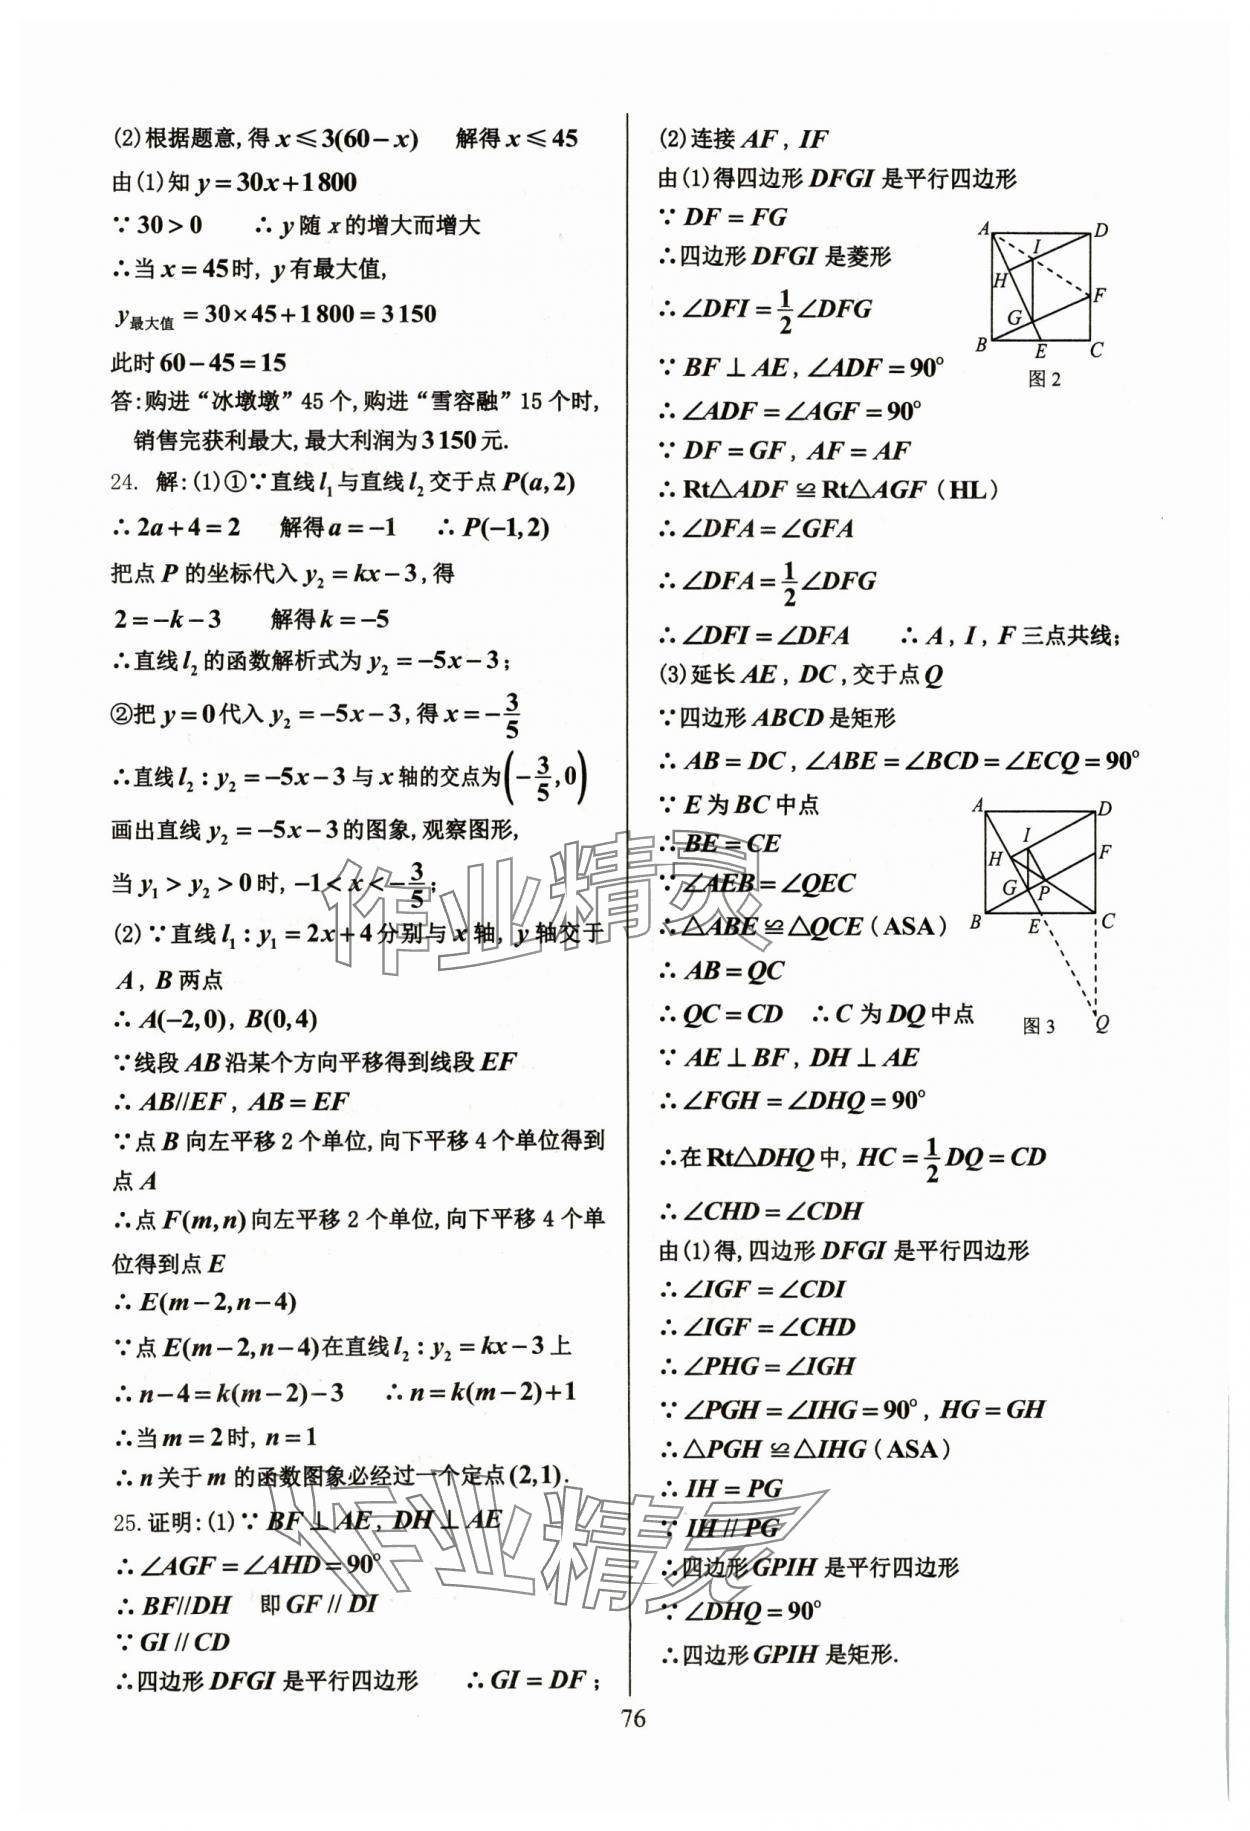 (2)根据题意,得 x≤3(60−x)  解得 x≤45
由(1)知 y=30x+1800
∵30>0  ∴y随 x的增大而增大
∴当 x=45时, y有最大值,
y最大值=30×45+1800=3150
此时 60−45=15
答:购进“冰墩墩”45个,购进“雪容融”15个时,
销售完获利最大,最大利润为3150元.
24. 解:(1)①∵直线l₁与直线l₂交于点P(a,2)
∴2a+4=2  解得a=−1  ∴P(−1,2)
把点 P 的坐标代入 y₂=kx−3,得
2=−k−3  解得k=−5
∴直线l₂的函数解析式为 y₂=−5x−3;
②把 y=0代入 y₂=−5x−3,得 x=−3/5
∴直线l₂:y₂=−5x−3与 x轴的交点为(−3/5,0)
画出直线y₂=−5x−3的图象,观察图形,
当 y₁>y₂>0时,−1<x<−3/5;
(2)∵直线l₁:y₁=2x+4分别与x轴, y轴交于
A, B两点
∴A(−2,0), B(0,4)
∵线段 AB沿某个方向平移得到线段EF
∴AB//EF, AB=EF
∵点B向左平移2个单位,向下平移4个单位得到
点A
∴点F(m,n)向左平移2个单位,向下平移4个单
位得到点E
∴E(m−2,n−4)
∵点E(m−2,n−4)在直线l₂:y₂=kx−3上
∴n−4=k(m−2)−3  ∴n=k(m−2)+1
∴当m=2时, n=1
∴n关于m的函数图象必经过一个定点(2,1).
25.证明:(1)∵BF⊥AE, DH⊥AE
∴∠AGF=∠AHD=90°
∴BF//DH  即GF//DI
∵GI//CD
∴四边形DFGI是平行四边形  ∴GI=DF;
(2)连接 AF, IF
由(1)得四边形DFGI是平行四边形
∵DF=FG
∴四边形DFGI是菱形
∴∠DFI=1/2∠DFG
∵BF⊥AE,∠ADF=90°
∴∠ADF=∠AGF=90°
∵DF=GF, AF=AF
∴Rt△ADF≌Rt△AGF(HL)
∴∠DFA=∠GFA
∴∠DFA=1/2∠DFG
∴∠DFI=∠DFA  ∴A, I, F三点共线;
A
D
I
H
F
G
B
E
C
图2
(3)延长AE, DC,交于点Q
∵四边形ABCD是矩形
∴AB=DC,∠ABE=∠BCD=∠ECQ=90°
∵E为BC中点
∴BE=CE
∵∠AEB=∠QEC
∴△ABE≌△QCE(ASA)
∴AB=QC
∴QC=CD  ∴C为DQ中点
∵AE⊥BF, DH⊥AE
∴∠FGH=∠DHQ=90°
∴在Rt△DHQ中, HC=1/2DQ=CD
∴∠CHD=∠CDH
由(1)得,四边形DFGI是平行四边形
∴∠IGF=∠CDI
∴∠IGF=∠CHD
∴∠PHG=∠IGH
∵∠PGH=∠IHG=90°, HG=GH
∴△PGH≌△IHG(ASA)
∴IH=PG
∵IH//PG
∴四边形GPIH是平行四边形
∵∠DHQ=90°
∴四边形GPIH是矩形.
A
D
I
H
F
G
P
B
E
C
图3
Q
76
作业精灵
作业精灵